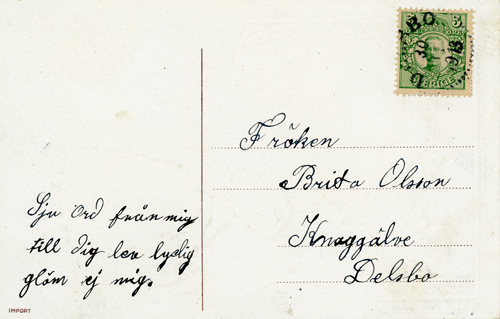 DELSBO
5 5
SVERIGE
Fröken
Brita Olsson
Knaggälve
Delsbo
Sju ord från mig
till dig lev lyclig
glöm ej mig.
IMPORT